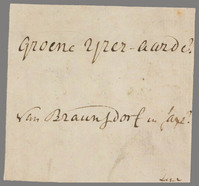 Groene Yzer-aarde.
Van Braunsdorf in